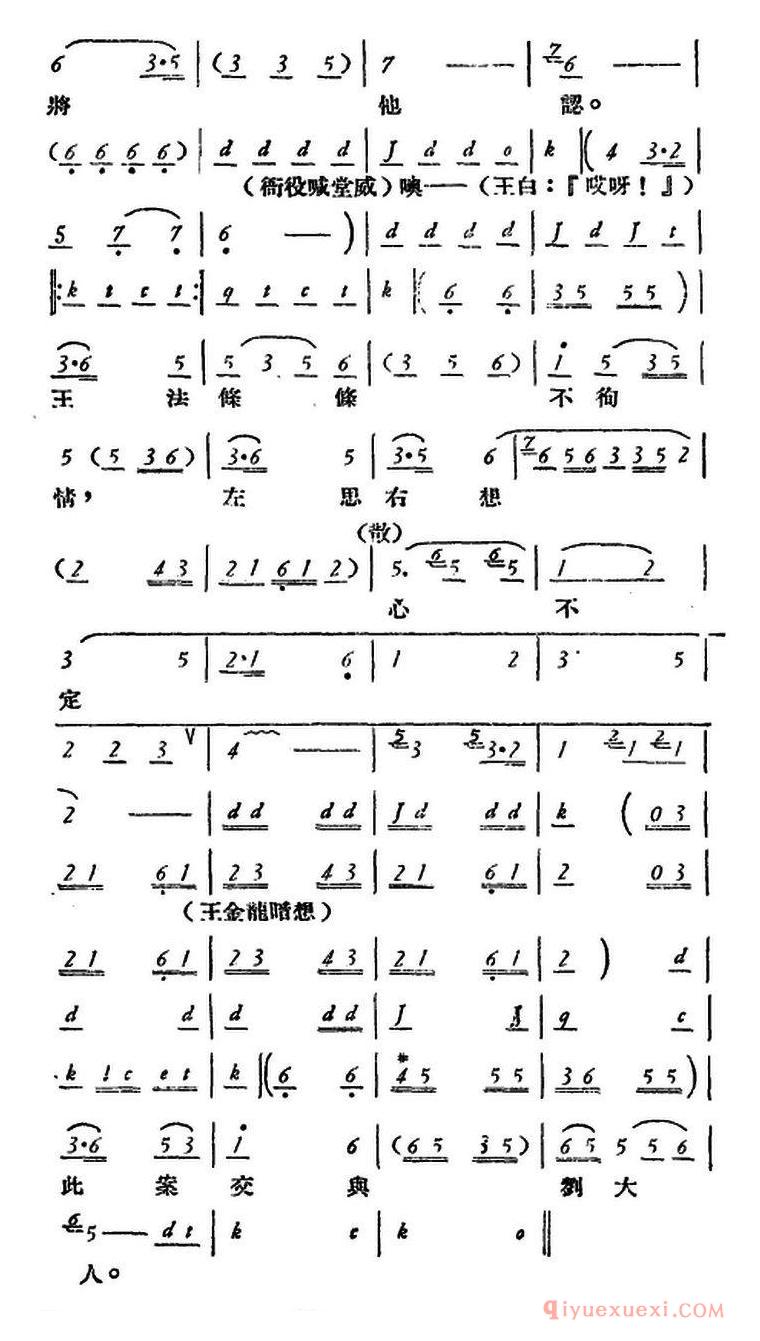 6 3·5 | (3 3 5) | 7 —— | 7 6 ——
將 他 認。
(6 6 6 6) | d d d d | J d d o | k ‖ (4 3·2 |
(衙役喊堂威)噢——(王白：『哎呀！』)
5 7 7 | 6 —) | d d d d | J d J t |
‖: k t c t :‖ q t c t | k ‖ (6 6 | 35 55) |
3·6 5 | 5 3 5 6 | (3 5 6) | i 5 35 |
王 法 條 條 不 徇
5 (5 36) | 3·6 5 | 3·5 6 | 7 6 56 3 35 2 |
情， 左 思 右 想
(散)
(2 43 | 21 61 2) | 5. 6 5 6 5 | 1 2 |
心 不
3 5 | 2·1 6 | 1 2 | 3· 5 |
定
2 2 3 V | 4 —— | 5 3 5 3·2 | 1 2 1 2 1 |
2 —— | dd dd | Jd dd | k (03 |
21 61 | 23 43 | 21 61 | 2 03 |
(王金龍暗想)
21 61 | 23 43 | 21 61 | 2 ) d |
d d | d dd | J J | q c |
k lc et | k ‖ (6 6 | #45 55 | 36 55) |
3·6 53 | i 6 | (65 35) | 65 5 5 6 |
此 案 交 與 劉 大
6 5 — dt | k c | k o ‖
人。
qiyuexuexi.com